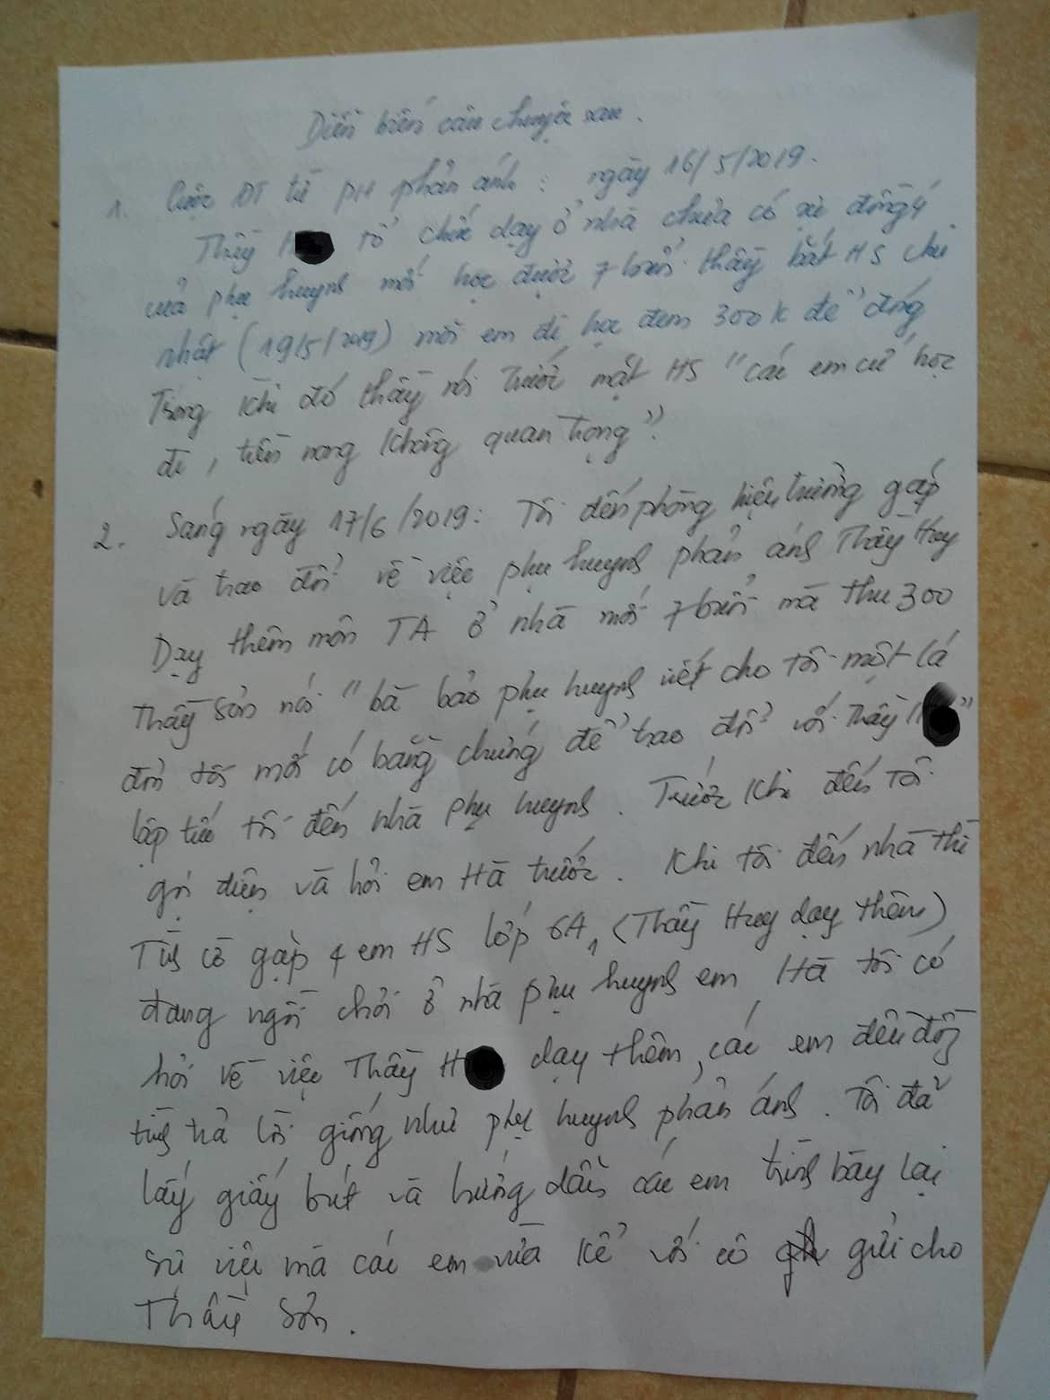 Diễn biến câu chuyện sau.
1. Cuộc ĐT từ PH phản ánh: ngày 16/5/2019.
Thầy H tổ chức dạy ở nhà chưa có sự đồng ý
của phụ huynh mới học được 7 buổi thầy bắt HS chủ
nhật (19/5/2019) mỗi em đi học đem 300k để đóng
Trong khi đó thầy nói trước mặt HS "các em cứ học
đi, tiền nong không quan trọng".
2. Sáng ngày 17/6/2019: Tôi đến phòng hiệu trưởng gặp
và trao đổi về việc phụ huynh phản ánh Thầy Huy
Dạy thêm môn TA ở nhà mới 7 buổi mà thu 300
Thầy Sơn nói "bà bảo phụ huynh viết cho tôi một lá
đơn tôi mới có bằng chứng để trao đổi với Thầy H"
lập tức tôi đến nhà phụ huynh. Trước khi đến tôi
gọi điện và hỏi em Hà trước. Khi tôi đến nhà thì
Tình cờ gặp 4 em HS lớp 6A1 (Thầy Huy dạy thêm)
đang ngồi chơi ở nhà phụ huynh em Hà tôi có
hỏi về việc Thầy H dạy thêm, các em đều đồng
tình trả lời giống như phụ huynh phản ánh. Tôi đã
lấy giấy bút và hướng dẫn các em trình bày lại
sự việc mà các em vừa kể với cô gửi cho
Thầy Sơn.